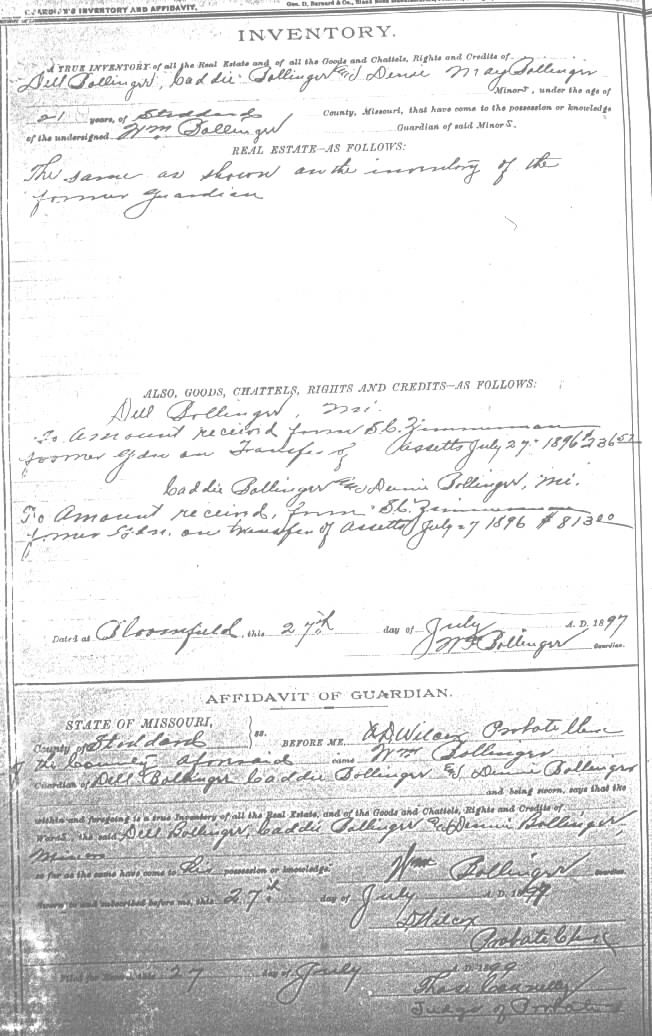 GUARDIAN'S INVENTORY AND AFFIDAVIT.
Geo. D. Barnard & Co.,
INVENTORY.
A TRUE INVENTORY of all the Real Estate and of all the Goods and Chattels, Rights and Credits of
Dell Bollinger, Caddie Bollinger & Dense May Bollinger
Minors, under the age of
21 years, of Stoddard County, Missouri, that have come to the possession or knowledge
of the undersigned Wm Bollinger Guardian of said Minors.
REAL ESTATE—AS FOLLOWS:
The same as shown on the inventory of the
former Guardian
ALSO, GOODS, CHATTELS, RIGHTS AND CREDITS—AS FOLLOWS:
Dell Bollinger, Mi.
To Amount received from S.C. Zimmerman
former Gdn on Transfer of Assetts July 27 1896 $236 57
Caddie Bollinger & Dennie Bollinger, Mi.
To Amount receivd, from S.C. Zimmerman
former Gdn. on transfer of Assetts July 27 1896 $ 813 00
Dated at Bloomfield, this 27th day of July A. D. 1897
Wm Bollinger Guardian.
AFFIDAVIT OF GUARDIAN.
STATE OF MISSOURI,
County of Stoddard ss. BEFORE ME, Wilcox Probate
of the County aforesaid came Wm Bollinger
Guardian of Dell Bollinger Caddie Bollinger & Dennie Bollinger
and being sworn, says that the
within and foregoing is a true Inventory of all the Real Estate, and of the Goods and Chattels, Rights and Credits of
Wards, the said Dell Bollinger, Caddie Bollinger & Dennie Bollinger,
Minors
so far as the same have come to his possession or knowledge.
Wm Bollinger Guardian.
Sworn to and subscribed before me, this 27th day of July A. D. 1897
Wilcox
Probate
Filed for Record, this 27 day of July A. D. 1899
Judge of Probate